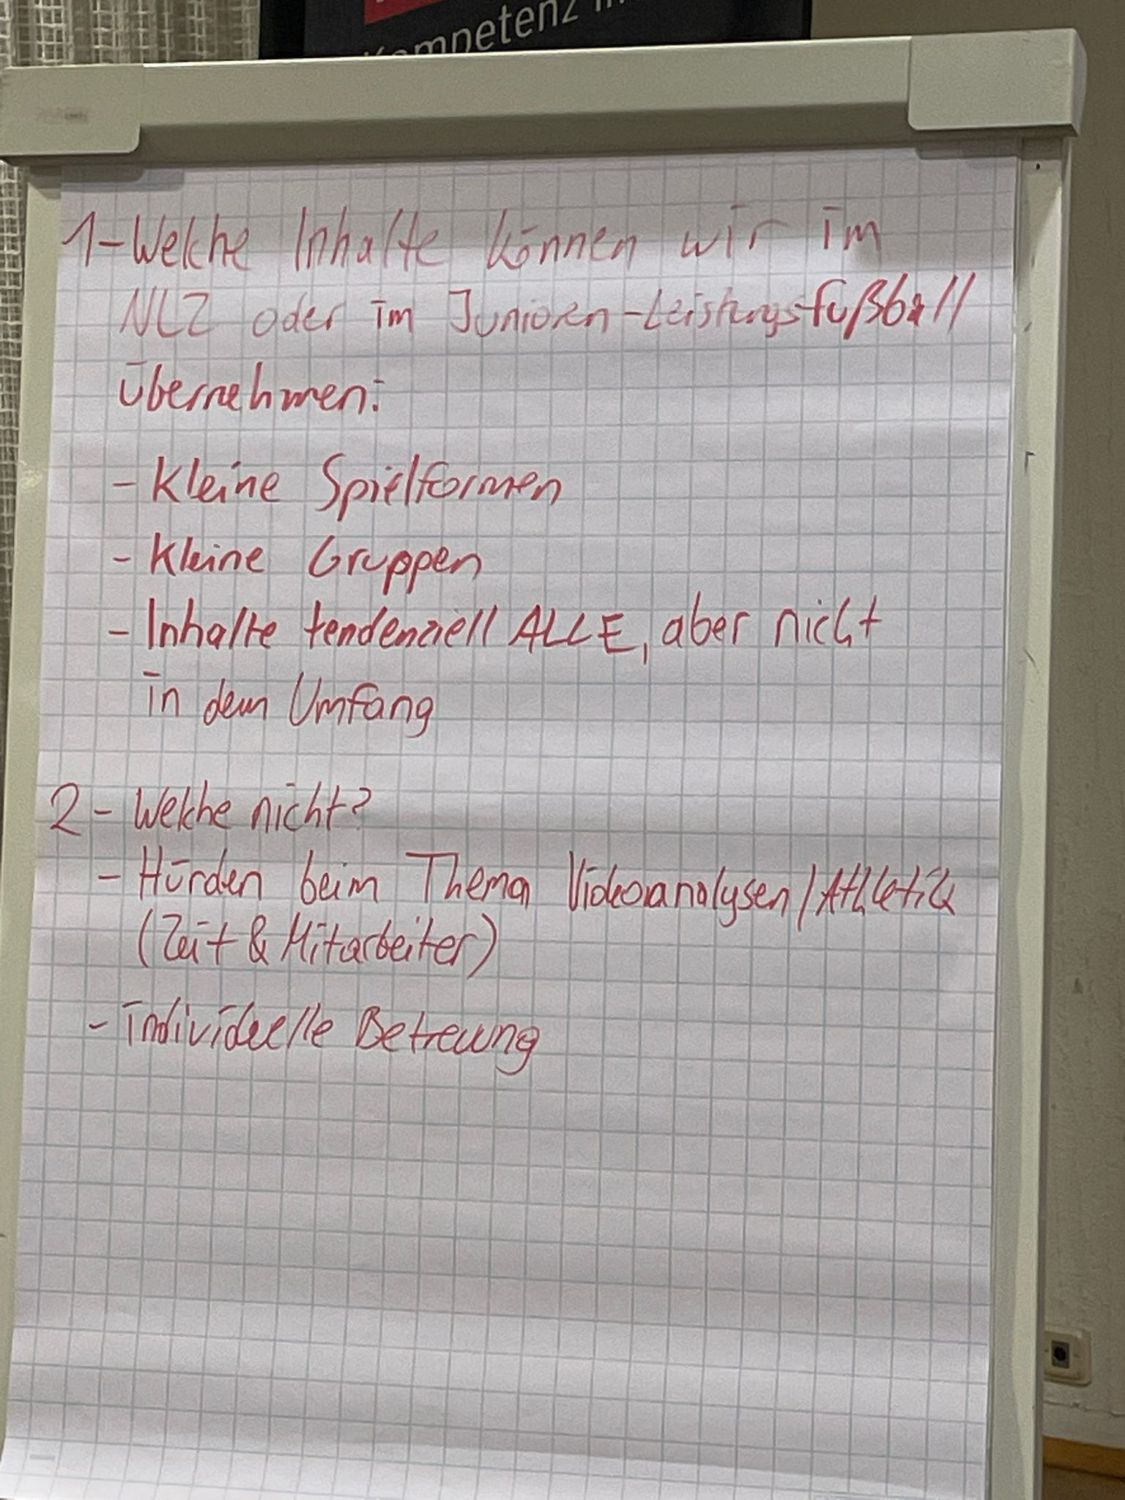 Kompetenz in
1-Welche Inhalte können wir im
NLZ oder im Junioren-Leistungsfußball
übernehmen:
- Kleine Spielformen
- Kleine Gruppen
- Inhalte tendenziell ALLE, aber nicht
in dem Umfang
2- Welche nicht?
- Hürden beim Thema Videoanalysen/Athletik
(Zeit & Mitarbeiter)
- individuelle Betreuung